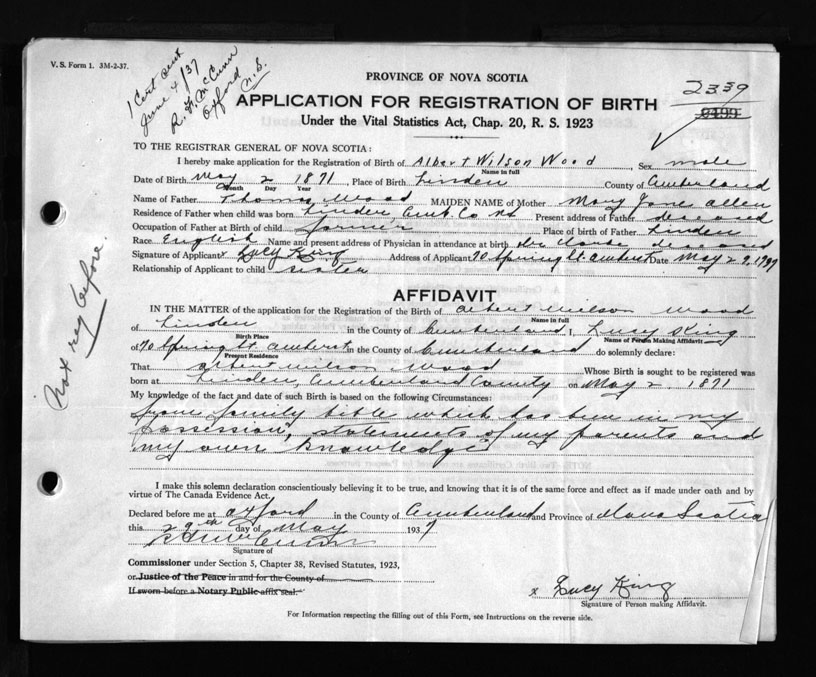 V. S. Form 1. 3M-2-37.
1 Cert sent
June 4/37
R. F. McCunn
Oxford N.S.
PROVINCE OF NOVA SCOTIA
2339
9499
APPLICATION FOR REGISTRATION OF BIRTH
Under the Vital Statistics Act, Chap. 20, R. S. 1923
TO THE REGISTRAR GENERAL OF NOVA SCOTIA:
I hereby make application for the Registration of Birth of Albert Wilson Wood, Sex male
Name in full
Date of Birth May 2 1871, Place of Birth Linden County of Cumberland
Month Day Year
Name of Father Thomas Wood MAIDEN NAME of Mother Mary Jane Allen
Residence of Father when child was born Linden Cumb. Co NS Present address of Father deceased
Occupation of Father at Birth of child farmer Place of birth of Father Linden
Race English Name and present address of Physician in attendance at birth Dr. Clarke deceased
Signature of Applicant x Lucy King Address of Applicant 70 Spring St. Amherst Date May 29, 1937
Relationship of Applicant to child sister
Not reg before.
AFFIDAVIT
IN THE MATTER of the application for the Registration of Birth of Albert Wilson Wood
Name in full
of Linden in the County of Cumberland I, Lucy King
Birth Place Name of Person Making Affidavit
of 70 Spring St Amherst in the County of Cumberland do solemnly declare:
Present Residence
That Albert Wilson Wood Whose Birth is sought to be registered was
born at Linden, Cumberland County on May 2 1871
My knowledge of the fact and date of such Birth is based on the following Circumstances:
from family bible which has been in my
possession, statements of my parents and
my own knowledge
I make this solemn declaration conscientiously believing it to be true, and knowing that it is of the same force and effect as if made under oath and by
virtue of The Canada Evidence Act.
Declared before me at Oxford in the County of Cumberland and Province of Nova Scotia
this 29th day of May 1937
Signature of
Commissioner under Section 5, Chapter 38, Revised Statutes, 1923,
or Justice of the Peace in and for the County of
If sworn before a Notary Public affix seal.
x Lucy King
Signature of Person making Affidavit.
For Information respecting the filling out of this Form, see Instructions on the reverse side.